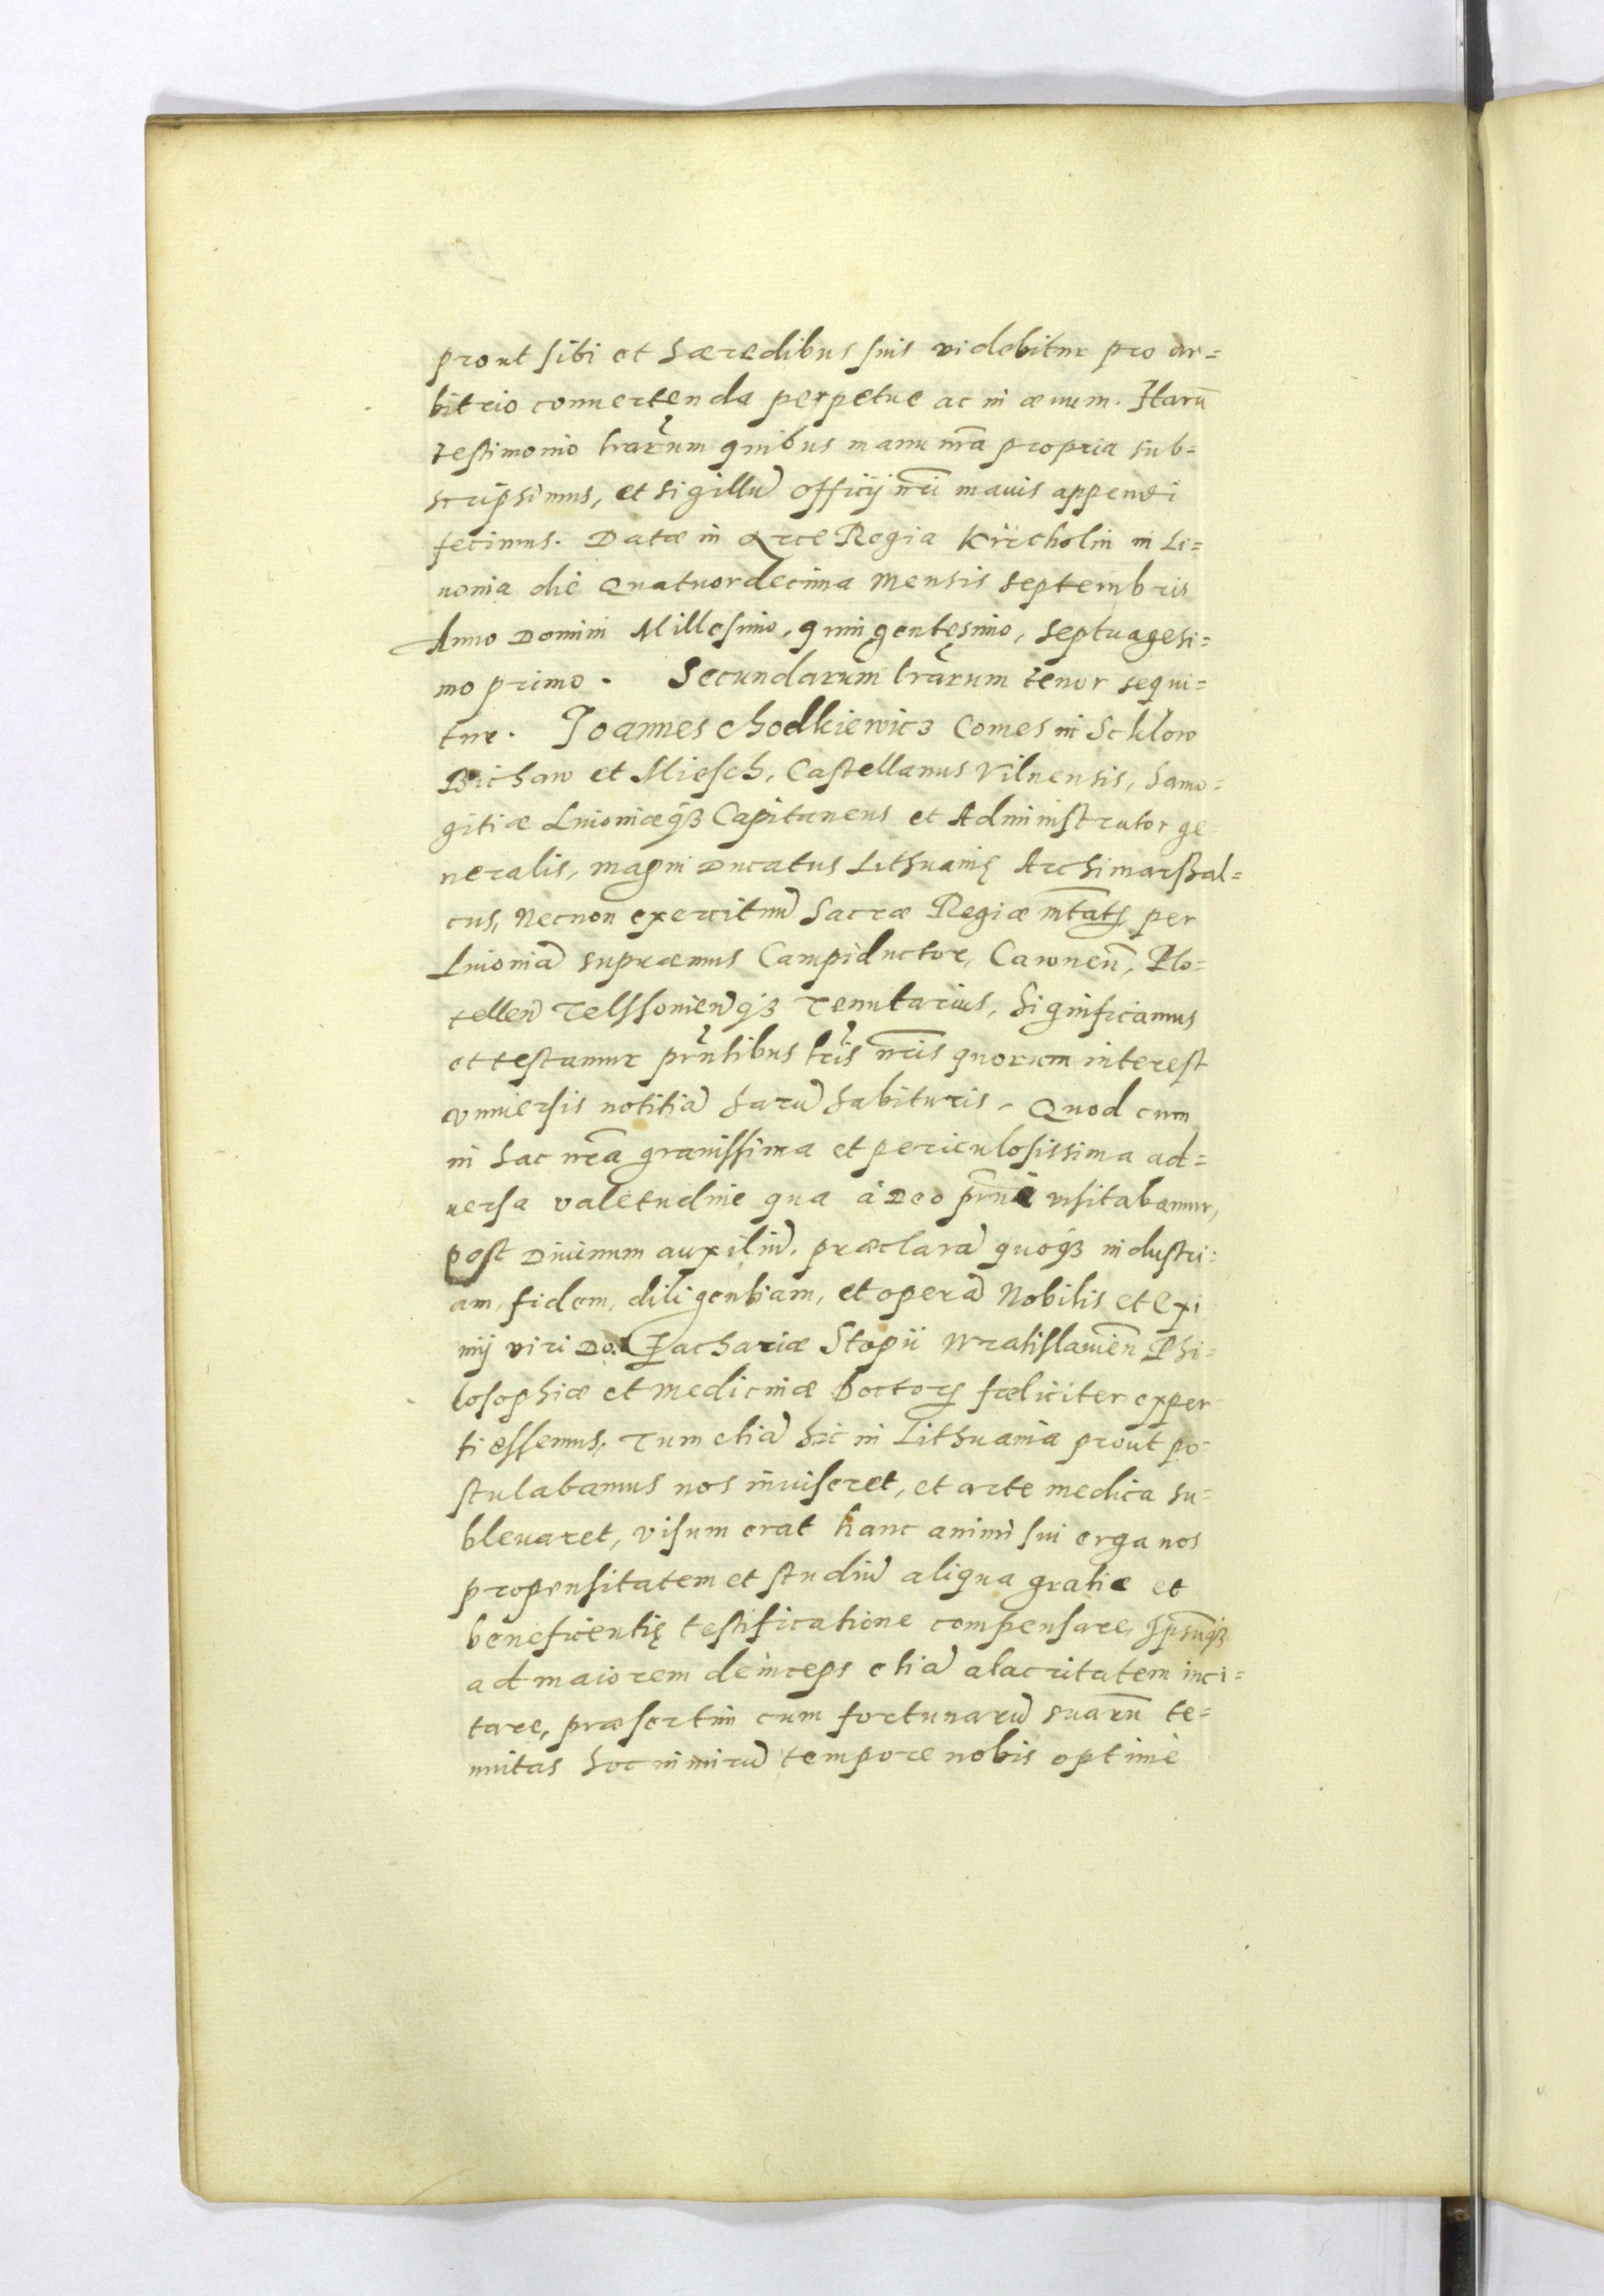 prout sibi et hæredibus suis videbitur pro ar=
bitrio conuertenda perpetue ac in æuum. Harū
testimonio lr̃arum quibus manu nr̃a propria sub=
scripsimus, et sigillũ officij nr̃i maius appendi
fecimus. Datæ in Arce Regia Kircholm in Li=
uonia die Quatuordecima Mensis Septembris
Anno Domini Millesimo, quingentesimo, Septuagesi=
mo primo. Secundarum lr̃arum tenor sequi=
tur. Joannes Chodkiewicz Comes in Schlow
Bichaw et Miesch, Castellanus Vilnensis, Samo=
gitiæ Liuoniæqȝ Capitaneus et Administrator ge=
neralis, magni Ducatus Lithuanię Archimarshal=
cus, Necnon exercituũ Sacræ Regiæ mtatis per
Liuoniã supræmus Campiductor, Cawneñ, Plo=
tellen̄ Telssonien̄qȝ Tenutarius, Significamus
et testamur pñtibus lr̃is nr̃is quorum interest
vniuersis notitiã harũ habituris. Quod cum
in hac nr̃a grauissima et periculosissima ad=
uersa valetudine qua à Deo pñne visitabamur,
post Diuinum auxiliũ, præclarã quoqȝ industri=
am, fidem, diligentiam, et operã Nobilis et exi
mij viri Do. Zachariæ Stopii Wratislauien̄ Phi=
losophiæ et Medicinæ Doctoris fœliciter exper=
ti essemus, Tum etiã hic in Lithuania prout po=
stulabamus nos inuiseret, et arte medica su=
bleuaret, visum erat hanc animi sui erga nos
propensitatem et studiũ aliqua gratiæ et
beneficentię testificatione compensare, Ipsũqȝ
ad maiorem deinceps etiã alacritatem inci=
tare, præsertim cum fortunarũ suarũ te=
nuitas hoc nimirũ tempore nobis optimè